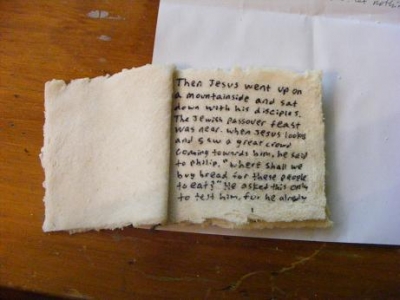 Then Jesus went up on
a mountainside and sat
down with his disciples.
The Jewish passover feast
was near. when Jesus looks
and saw a great crowd
coming towards him, he said
to philip, "where shall we
buy bread for these people
to eat?" He asked this only
to test him, for he already